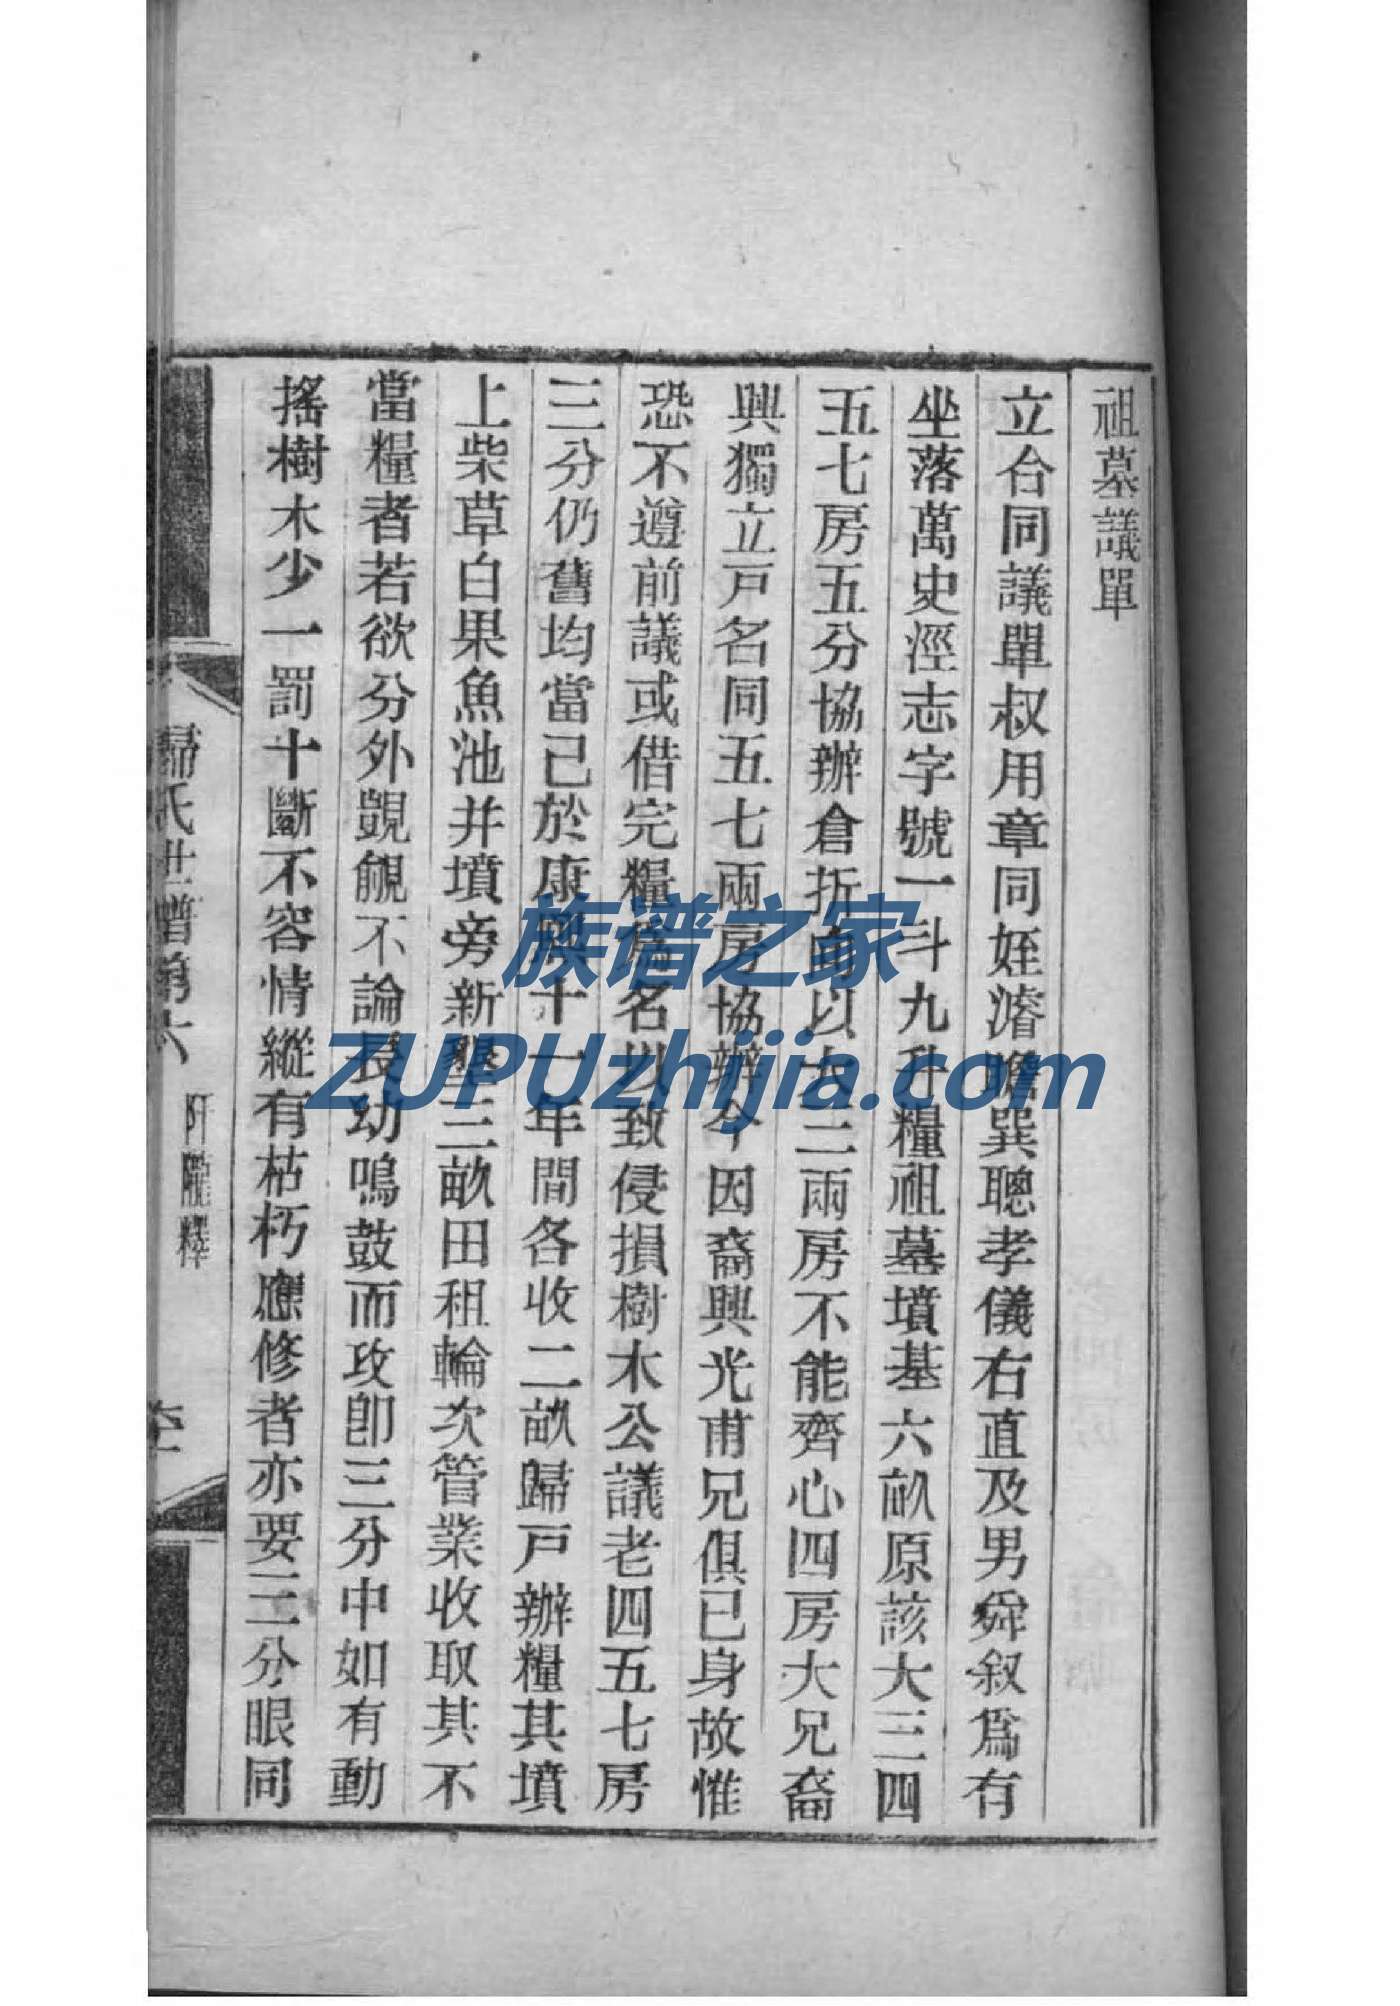 祖墓議單
立合同議單叔用章同姪濬瞻巽聰孝儀右直及男舜叙爲有
坐落萬史涇志字號一斗九升糧祖墓墳基六畝原該大三四
五七房五分協辦倉折的以大三兩房不能齊心四房大兄裔
興獨立戸名同五七兩房協辦今因裔興光甫兄俱已身故惟
恐不遵前議或借完糧爲名以致侵損樹木公議老四五七房
三分仍舊均當已於康熙十一年間各收二畝歸戸辦糧其墳
上柴草白果魚池并墳旁新墾三畝田租輪次管業收取其不
當糧者若欲分外覬覦不論長幼鳴鼓而攻卽三分中如有動
搖樹木少一罰十斷不容情縱有枯朽應修者亦要三分眼同
歸氏世譜第六
阡隴
族谱之家
ZUPUzhijia.com